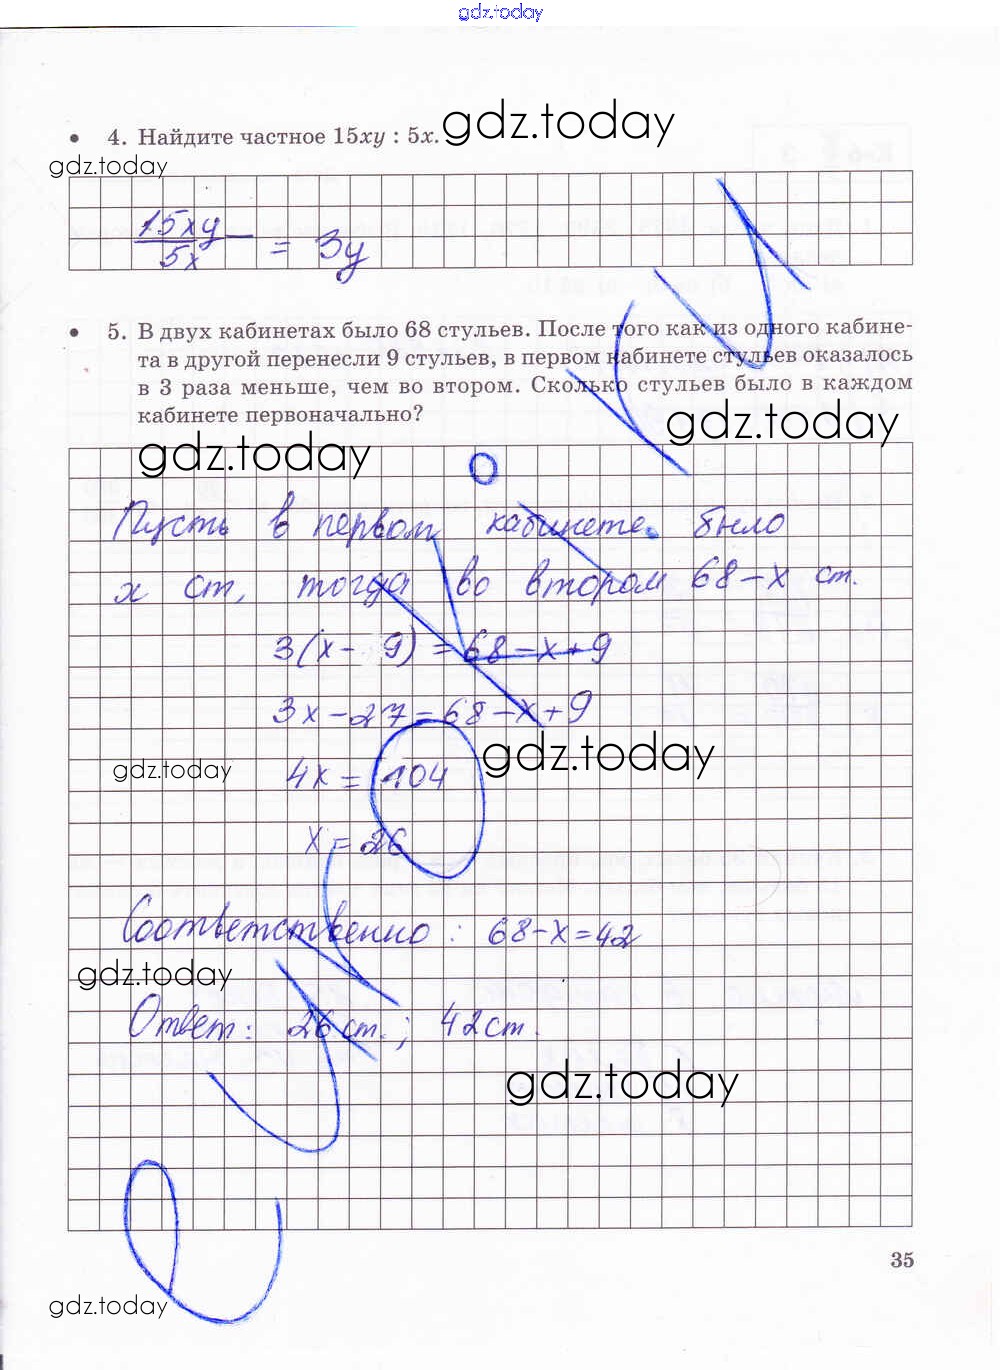 gdz.today
4. Найдите частное 15xy : 5x.
gdz.today
gdz.today
15xy
5x
= 3y
5. В двух кабинетах было 68 стульев. После того как из одного кабине-
та в другой перенесли 9 стульев, в первом кабинете стульев оказалось
в 3 раза меньше, чем во втором. Сколько стульев было в каждом
кабинете первоначально?
gdz.today
gdz.today
Пусть в первом кабинете было
x ст, тогда во втором 68-x ст.
3(x- 9) = 68-x+9
3x-27=68-x+9
gdz.today
gdz.today
4x = 104
x = 26
Соответственно : 68-x=42
gdz.today
Ответ: 26 ст.; 42 ст.
gdz.today
35
gdz.today